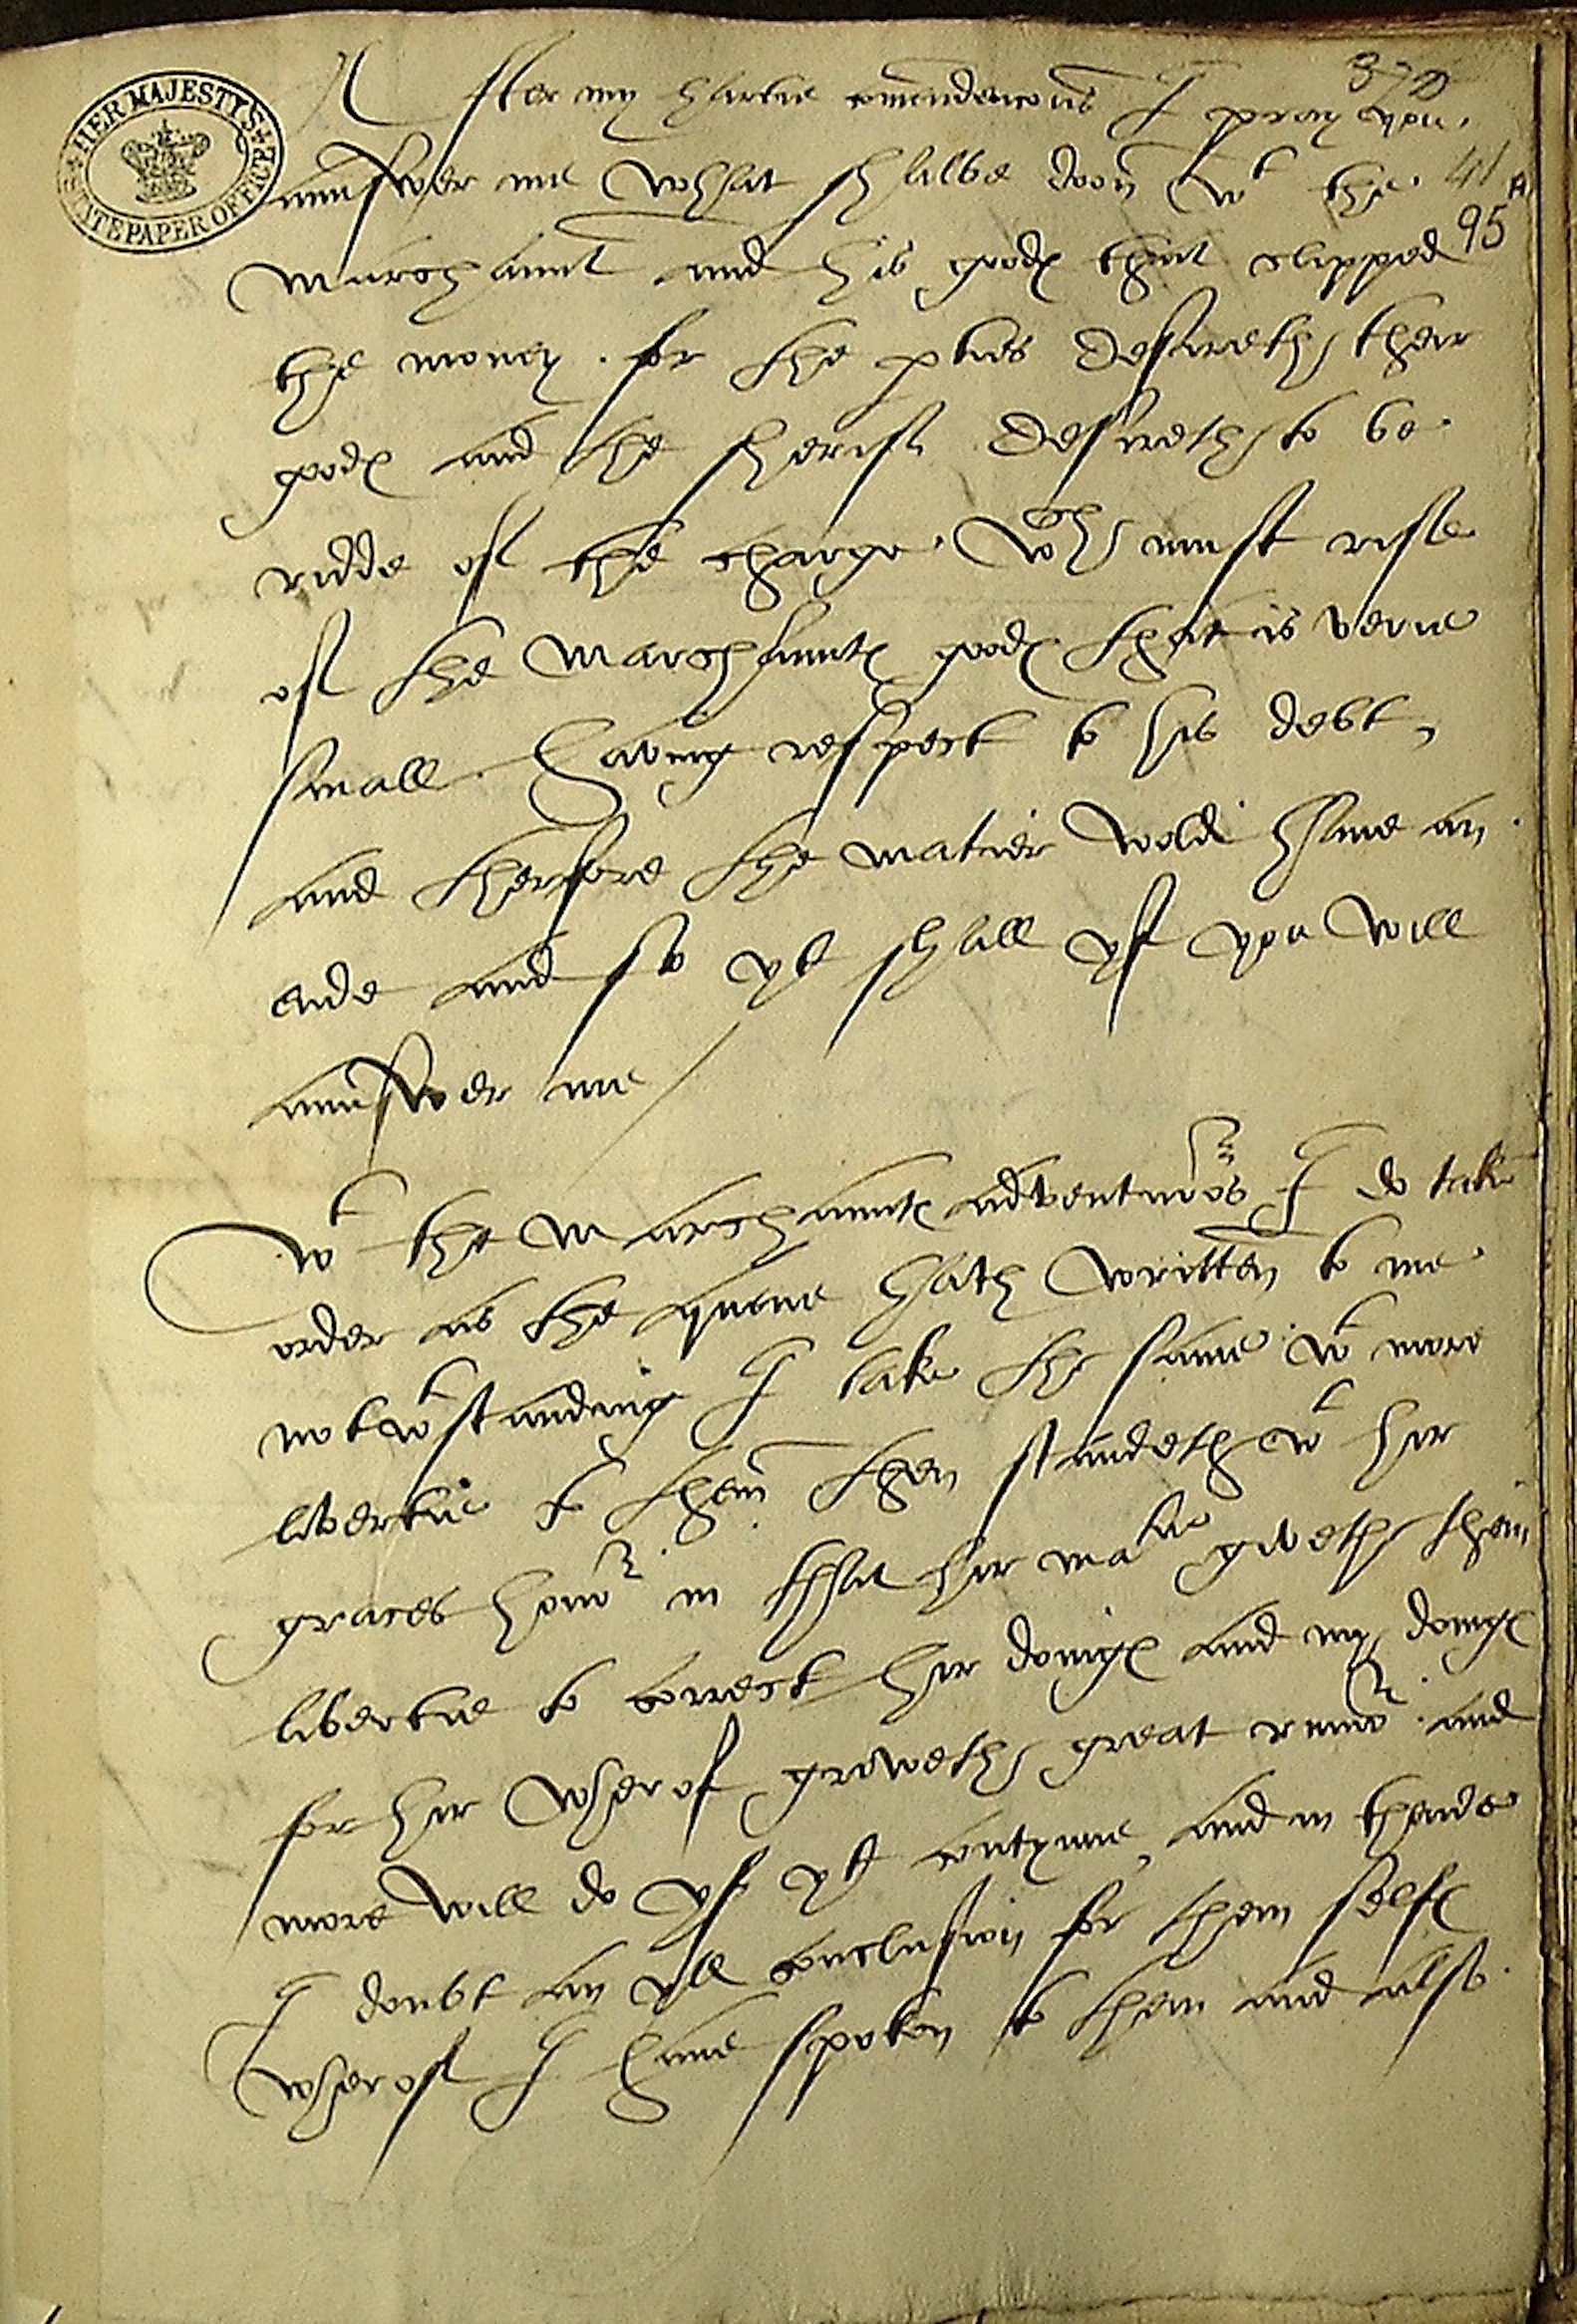 HER MAJESTY'S STATE PAPER OFFICE
37
After my hartie comendacons I pray you
aunswer me what shalbe doon wt the
41 A
marchaunt and his goodℓ that clipped
95
the money . for the pties desireth their
goodℓ and the sherif desireth to be
ridde of the charge . wch must rise
of the marchauntℓ goodℓ that is verie
small . having respect to his debt ,
and therfore the matier wold have an
ende and so yt shall yf you will
aunswer me /
Wt the marchauntℓ adventurors I do take
order as the quene hath written to me
notwtstanding I take the same wt more
libertie to them then standeth wt her
graces honor in that her matie giveth them
libertie to correct her doingℓ and my doingℓ
for her wherof groweth great rumor . and
more will do yf yt contynue , and in thende
I doubt an yll conclusion for them selfℓ
wherof I have spoken to them and also